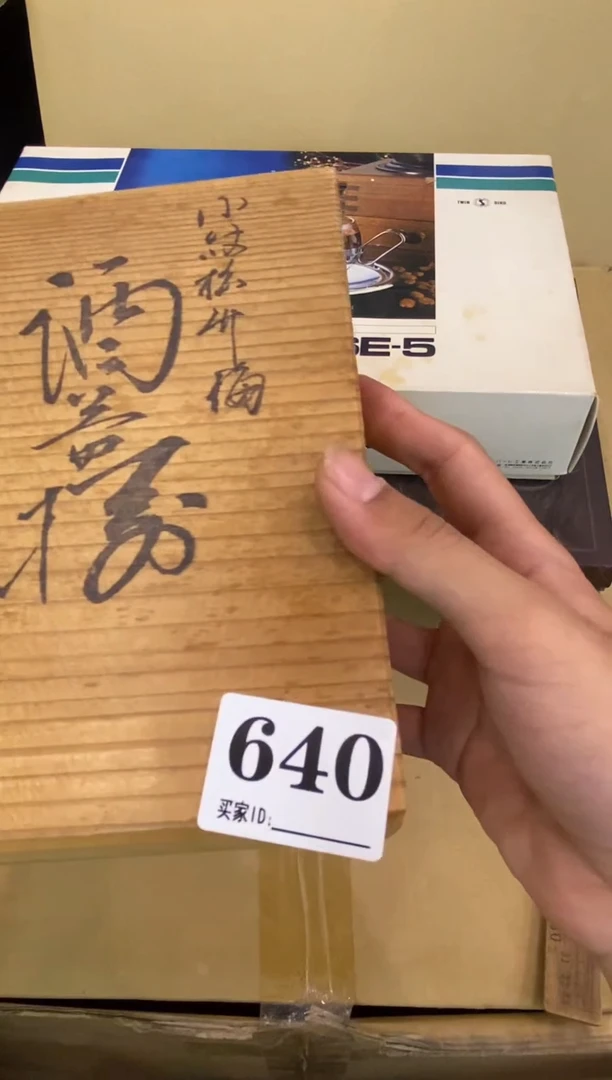 小紋松竹梅
酒盃
640
买家ID:
SE-5
TWIN BIRD